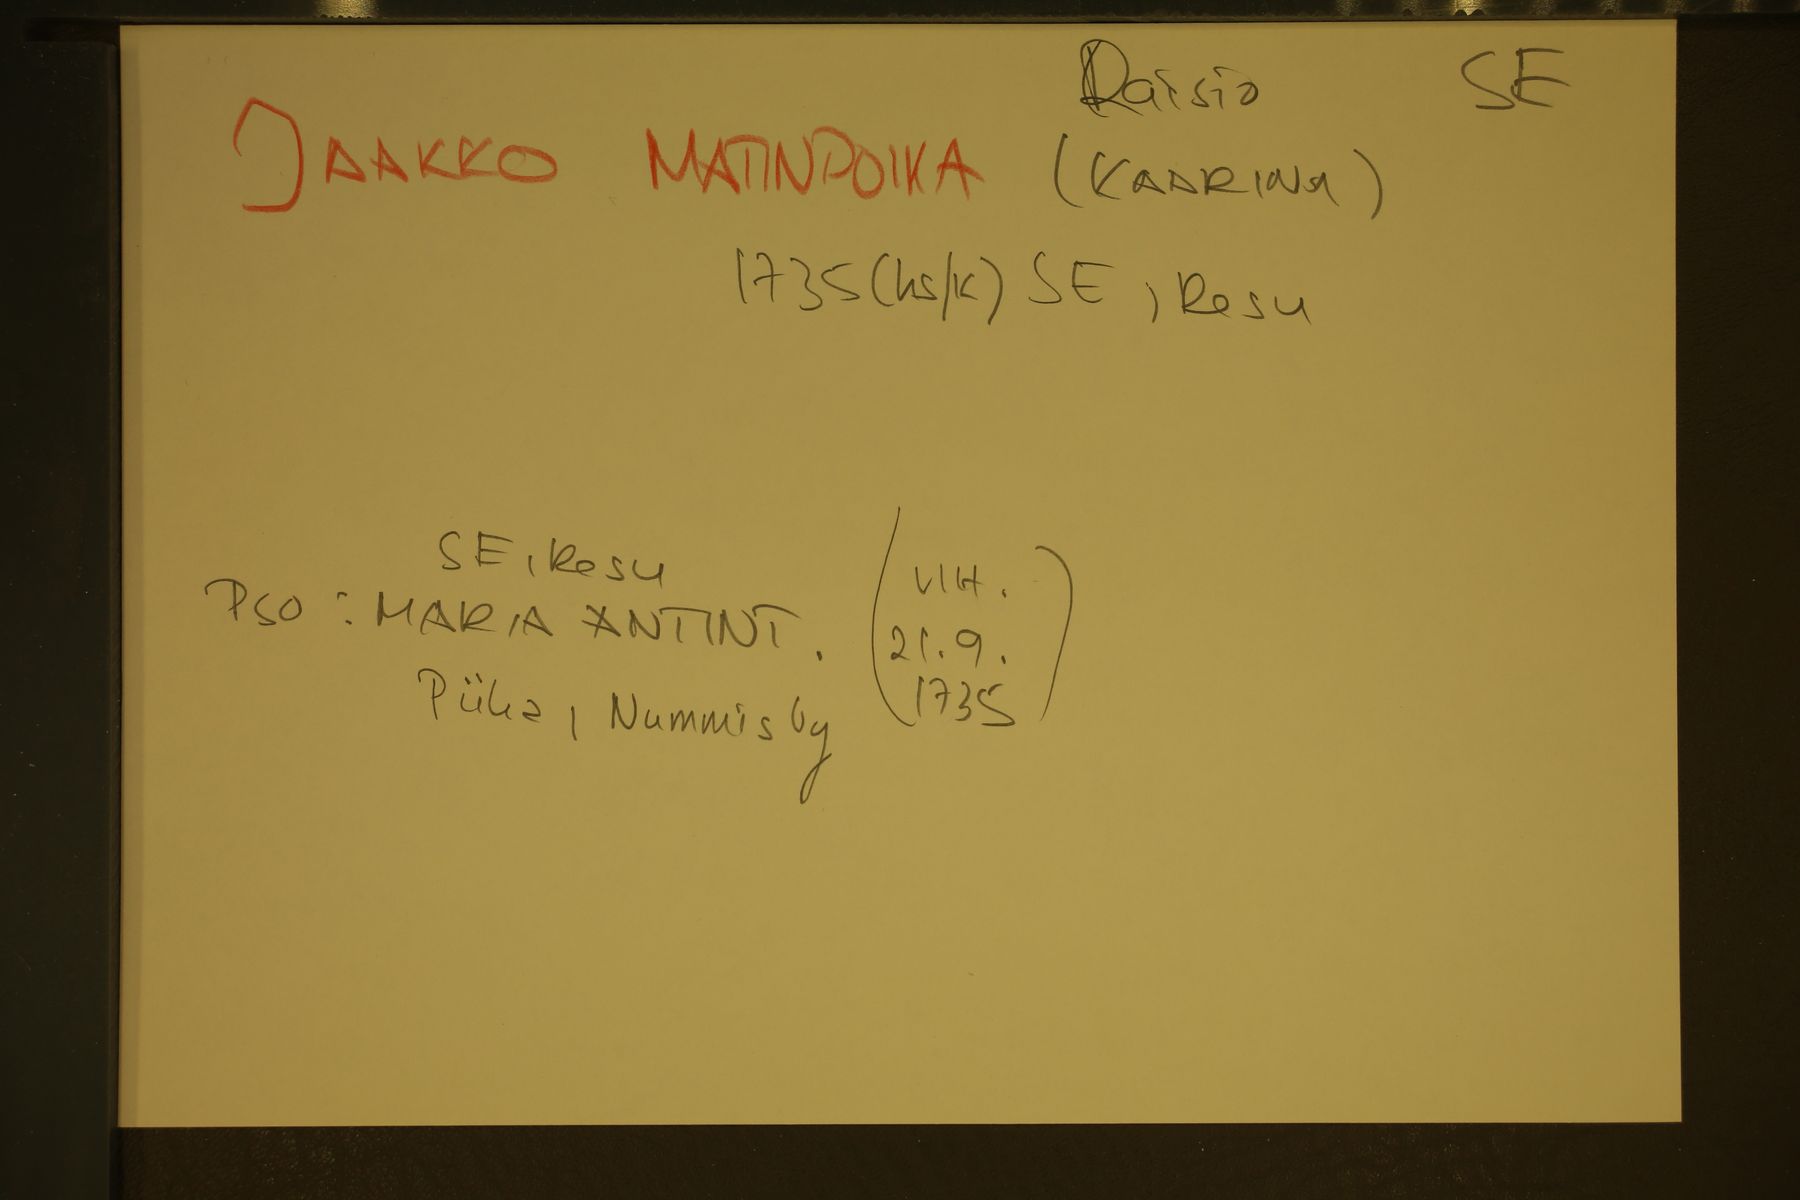 Raisio SE
JAAKKO MATINPOIKA (KAARINA)
1735 (hs/k) SE, Resu
SE, Resu
PSO: MARIA ANTINT.
Püha, Nummisby
(VIH.
21.9.
1735)